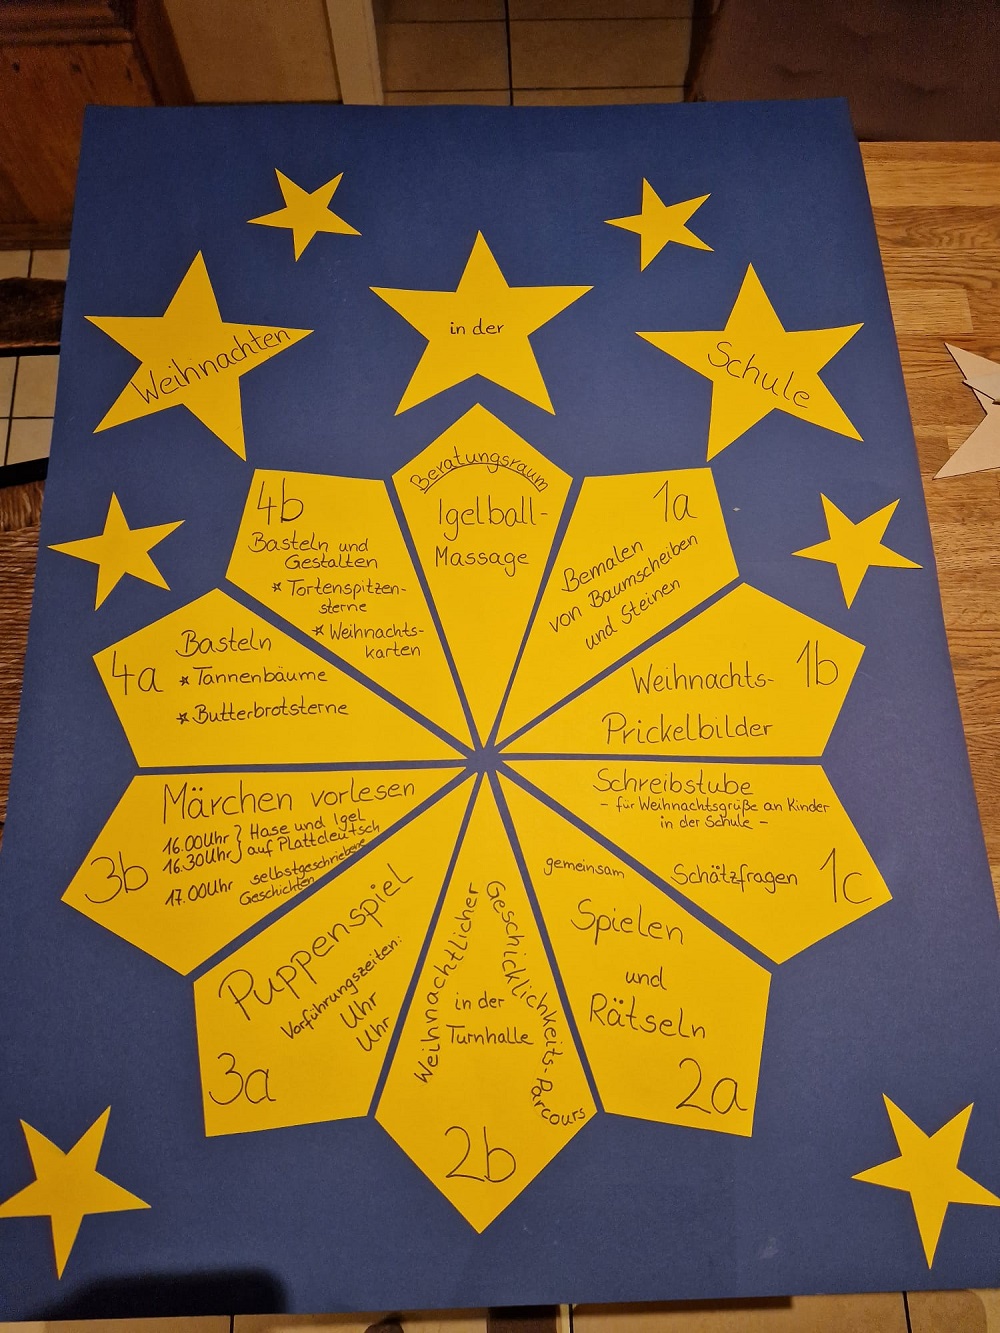 Weihnachten
in der
Schule
Beratungsraum
Igelball-
Massage
1a
Bemalen
von Baumscheiben
und Steinen
1b
Weihnachts-
Prickelbilder
Schreibstube
- für Weihnachtsgrüße an Kinder
in der Schule -
Schätzfragen
1c
gemeinsam
Spielen
und
Rätseln
2a
Weihnachtlicher
Geschicklichkeits-Parcours
in der
Turnhalle
2b
Puppenspiel
Vorführungszeiten:
Uhr
Uhr
3a
Märchen vorlesen
16.00Uhr } Hase und Igel
16.30Uhr } auf Plattdeutsch
17.00Uhr selbstgeschriebene
Geschichten
3b
4a
Basteln
* Tannenbäume
* Butterbrotsterne
4b
Basteln und
Gestalten
* Tortenspitzen-
sterne
* Weihnachts-
karten